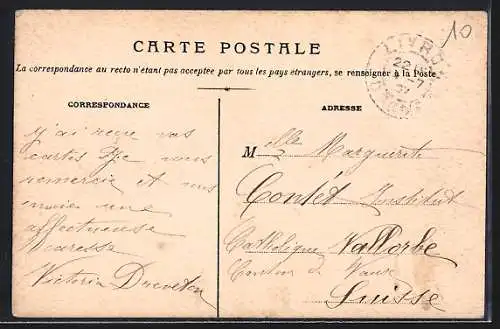 10
CARTE POSTALE
La correspondance au recto n'étant pas acceptée par tous les pays étrangers, se renseigner à la Poste.
LIVRON
22
CORRESPONDANCE
j'ai reçu vos
cartes Je vous
remercie et vous
envoie une
affectueuse
caresse
Victoria Dreveton
ADRESSE
Mlle Marguerite
Contét Institut
Catholique Vallorbe
Canton de Vaux
Suisse